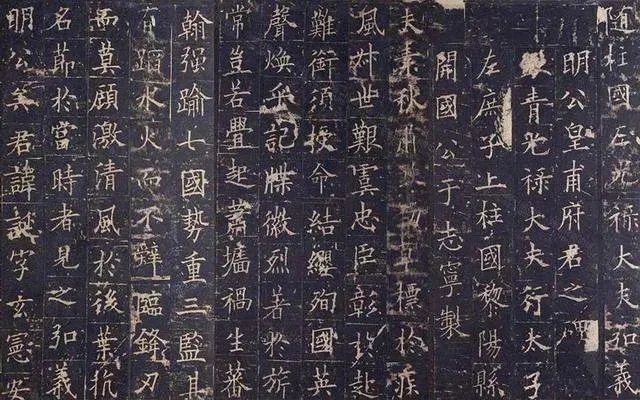 隨柱國左光祿大夫弘義
明公皇甫府君之碑
青光祿大夫行太子
左庶子上柱國黎陽縣
開國公于志寧製
夫素秋肅勁草標於疾
風叶世艱虞忠臣彰於赴
難銜須授命結纓殉國英
聲煥乎記牒徽烈著於旂
常豈若釁起蕭墻禍生蕃
翰强踰七國勢重三監其
有蹈水火而不辭臨鋒刃
而莫顧激清風於後葉抗
名節於當時者見之弘義
明公矣君諱誕字玄憲安